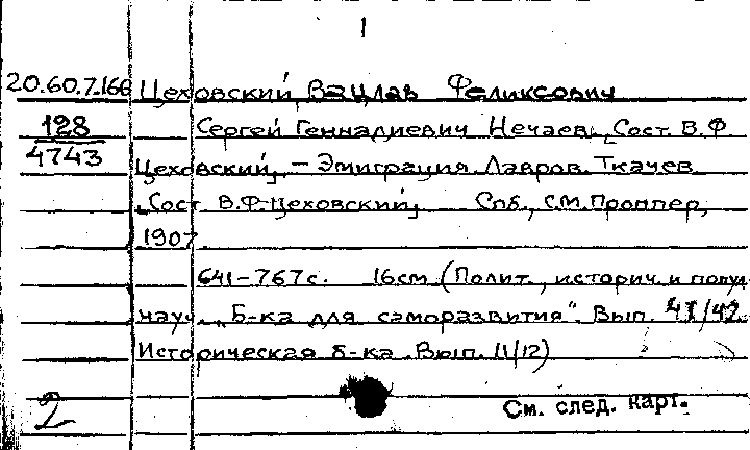 1
20.60.7.166 Цеховский, Вацлав Феликсович
128 Сергей Геннадиевич Нечаев, [Сост. В.Ф
4743 Цеховский]. - Эмиграция. Лавров. Ткачев
[Сост. В.Ф.Цеховский]. Спб., С.М. Проппер,
1907.
641-767 с. 16см (Полит., историч. и попул
науч. „Б-ка для саморазвития". Вып. 41/42.
Историческая б-ка. Вып. 11/12)
2 См. след. карт.